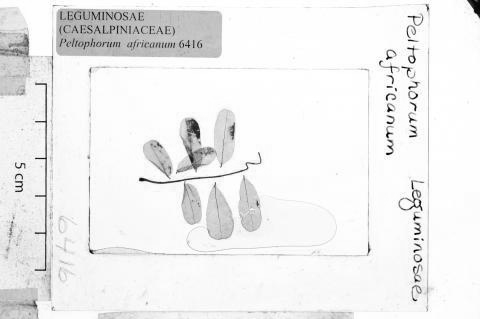 LEGUMINOSAE
(CAESALPINIACEAE)
Peltophorum africanum 6416
Peltophorum Leguminosae,
africanum
5 cm
6416